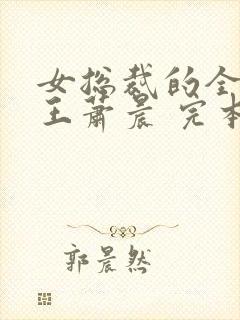 女总裁的全
王萧晨 完本
郭晨然